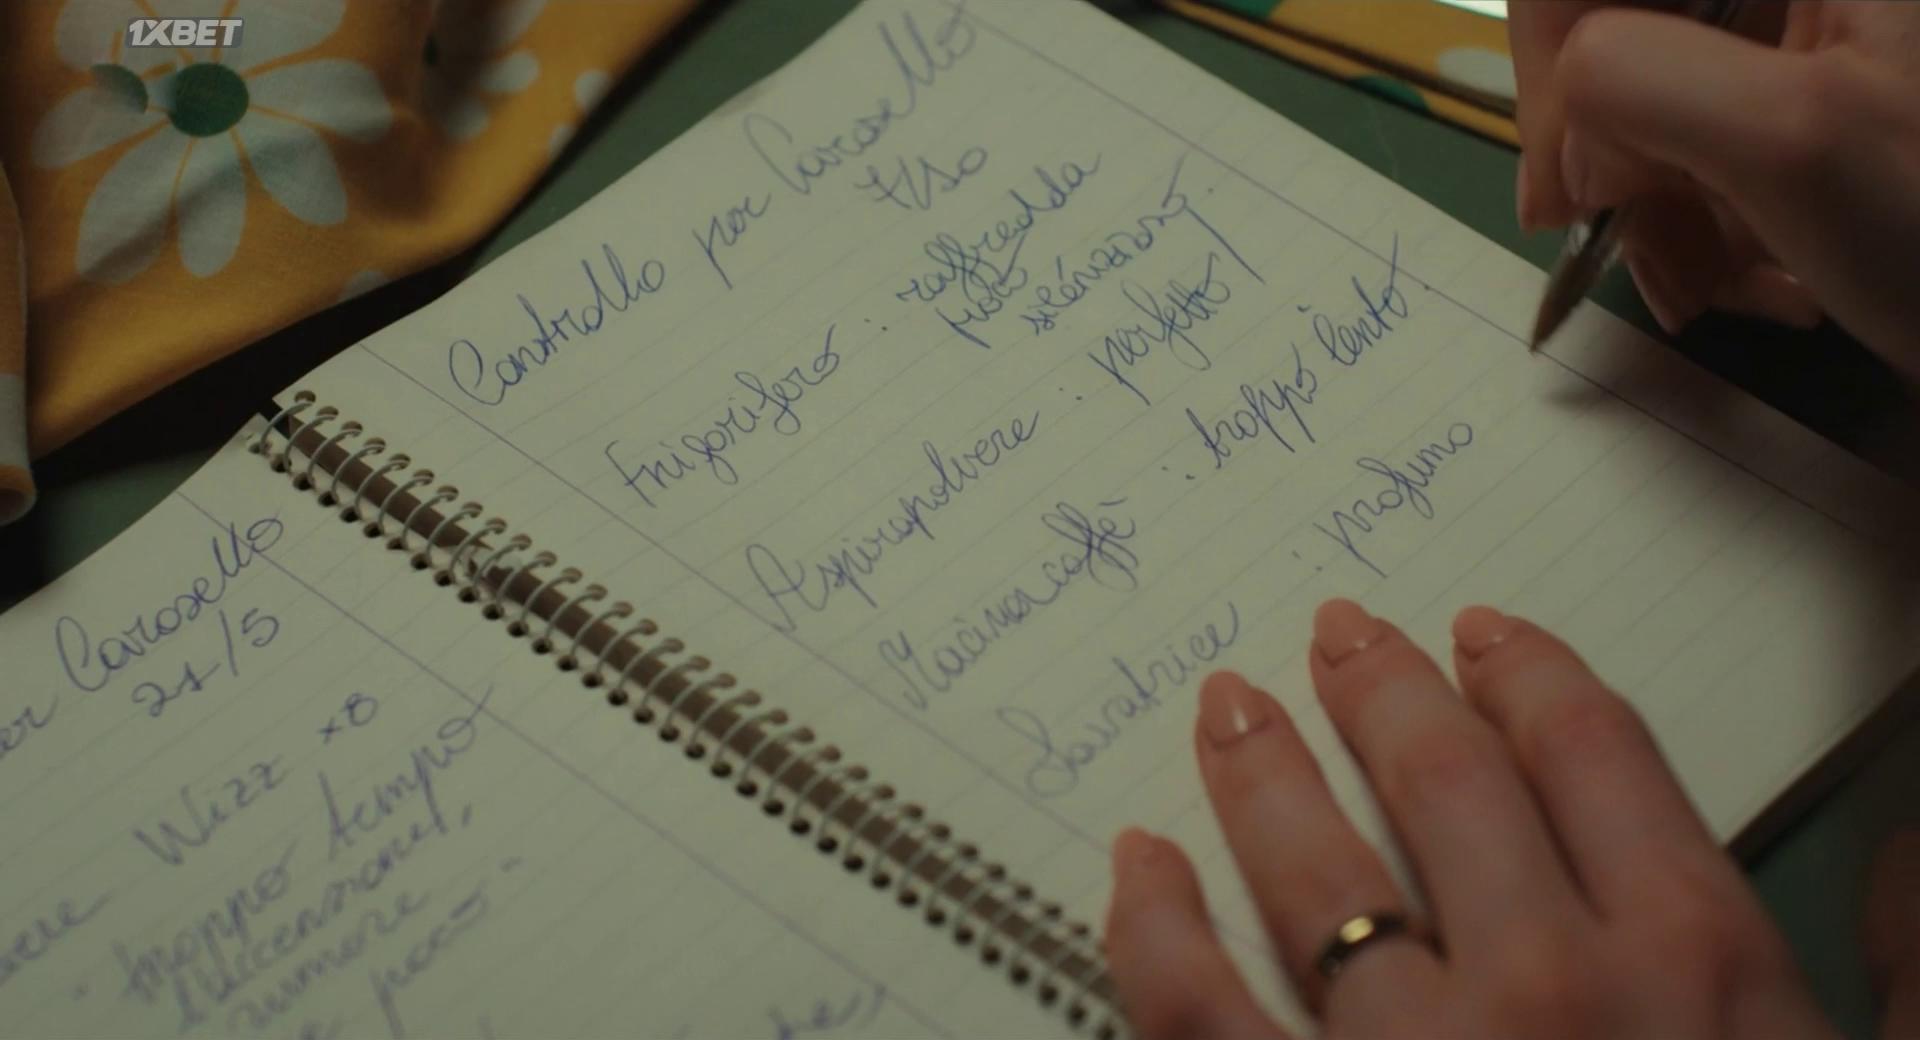 1XBET
Controllo per Carosello
7/10
Frigorifero : raffredda
poco
silenzioso.
Aspirapolvere : perfetto
Macinacaffè : troppo lento.
Lavatrice : profumo
er Carosello
21/5
Wizz x8
"troppo tempo
rumore
poco"